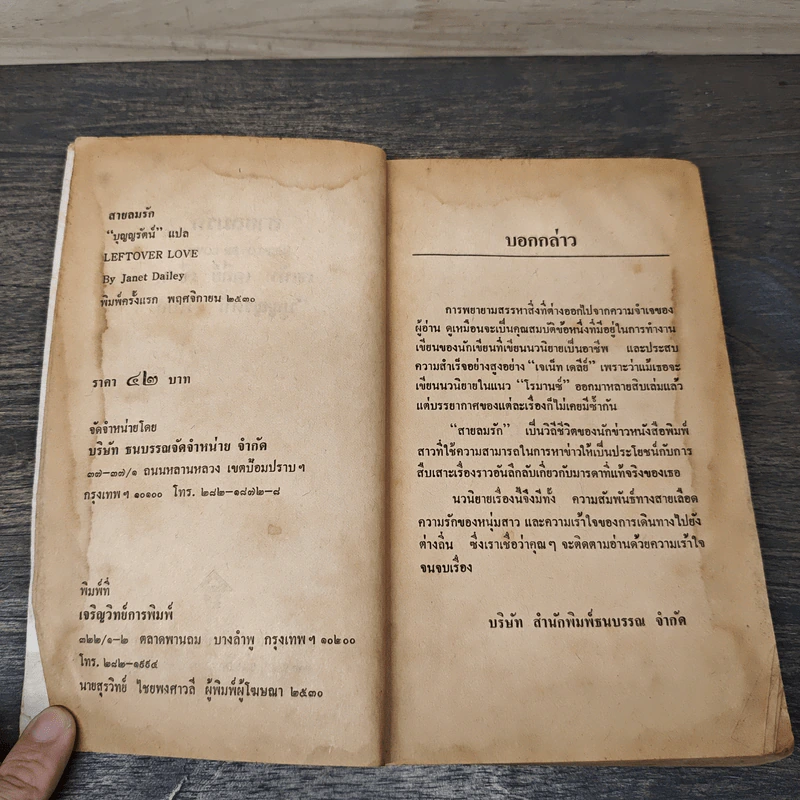 สายลมรัก
“บุญญรัตน์” แปล
LEFTOVER LOVE
By Janet Dailey
พิมพ์ครั้งแรก พฤศจิกายน ๒๕๓๐
ราคา ๔๒ บาท
จัดจำหน่ายโดย
บริษัท ธนบรรณจัดจำหน่าย จำกัด
๓๗-๓๗/๑ ถนนหลานหลวง เขตป้อมปราบฯ
กรุงเทพฯ ๑๐๑๐๐ โทร. ๒๘๒-๑๘๗๒-๘
พิมพ์ที่
เจริญวิทย์การพิมพ์
๓๒๒/๑-๒ ตลาดพานถม บางลำพู กรุงเทพฯ ๑๐๒๐๐
โทร. ๒๘๒-๑๙๙๔
นายสุรวิทย์ ไชยพงศาวลี ผู้พิมพ์ผู้โฆษณา ๒๕๓๐
บอกกล่าว
การพยายามสรรหาสิ่งที่ต่างออกไปจากความจำเจของ
ผู้อ่าน ดูเหมือนจะเป็นคุณสมบัติข้อหนึ่งที่มีอยู่ในการทำงาน
เขียนของนักเขียนที่เขียนนวนิยายเป็นอาชีพ และประสบ
ความสำเร็จอย่างสูงอย่าง “เจเน็ท เดลีย์” เพราะว่าแม้เธอจะ
เขียนนวนิยายในแนว “โรมานซ์” ออกมาหลายสิบเล่มแล้ว
แต่บรรยากาศของแต่ละเรื่องก็ไม่เคยมีซ้ำกัน
“สายลมรัก” เป็นวิถีชีวิตของนักข่าวหนังสือพิมพ์
สาวที่ใช้ความสามารถในการหาข่าวให้เป็นประโยชน์กับการ
สืบเสาะเรื่องราวอันลึกลับเกี่ยวกับมารดาที่แท้จริงของเธอ
นวนิยายเรื่องนี้จึงมีทั้ง ความสัมพันธ์ทางสายเลือด
ความรักของหนุ่มสาว และความเร้าใจของการเดินทางไปยัง
ต่างถิ่น ซึ่งเราเชื่อว่าคุณๆ จะติดตามอ่านด้วยความเร้าใจ
จนจบเรื่อง
บริษัท สำนักพิมพ์ธนบรรณ จำกัด